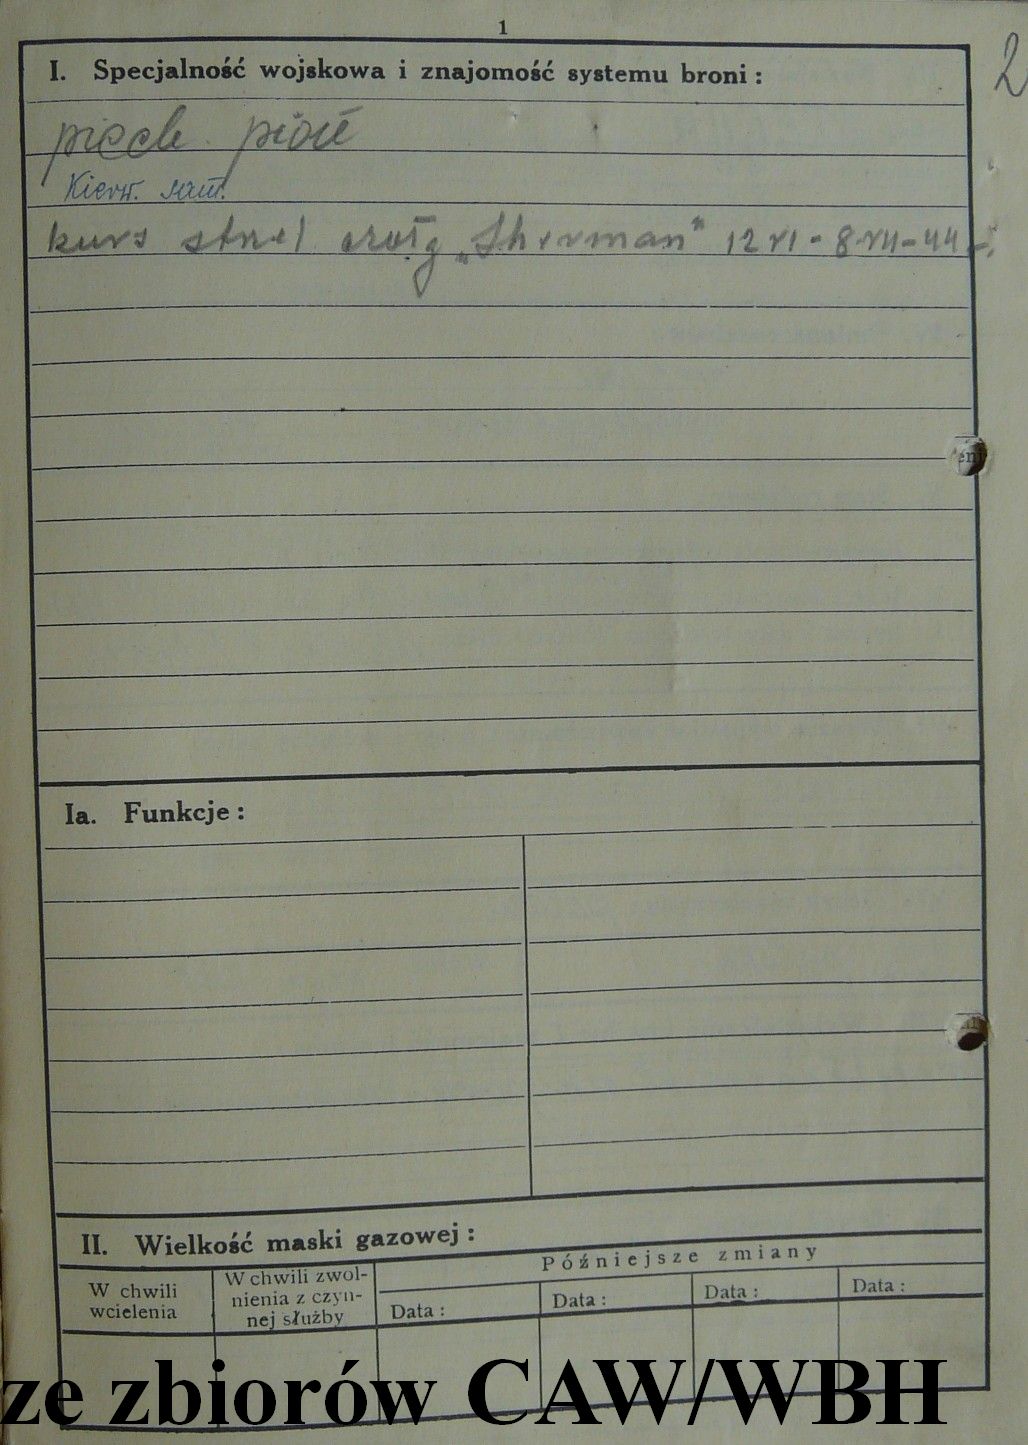 1
2
I. Specjalność wojskowa i znajomość systemu broni :
piech
Kierw. sam.
kurs strzel czołg „Sherman" 12 VI - 8 VII - 44
Ia. Funkcje :
II. Wielkość maski gazowej :
Późniejsze zmiany
W chwili
wcielenia
W chwili zwol-
nienia z czyn-
nej służby
Data :
Data :
Data :
Data :
ze zbiorów CAW/WBH